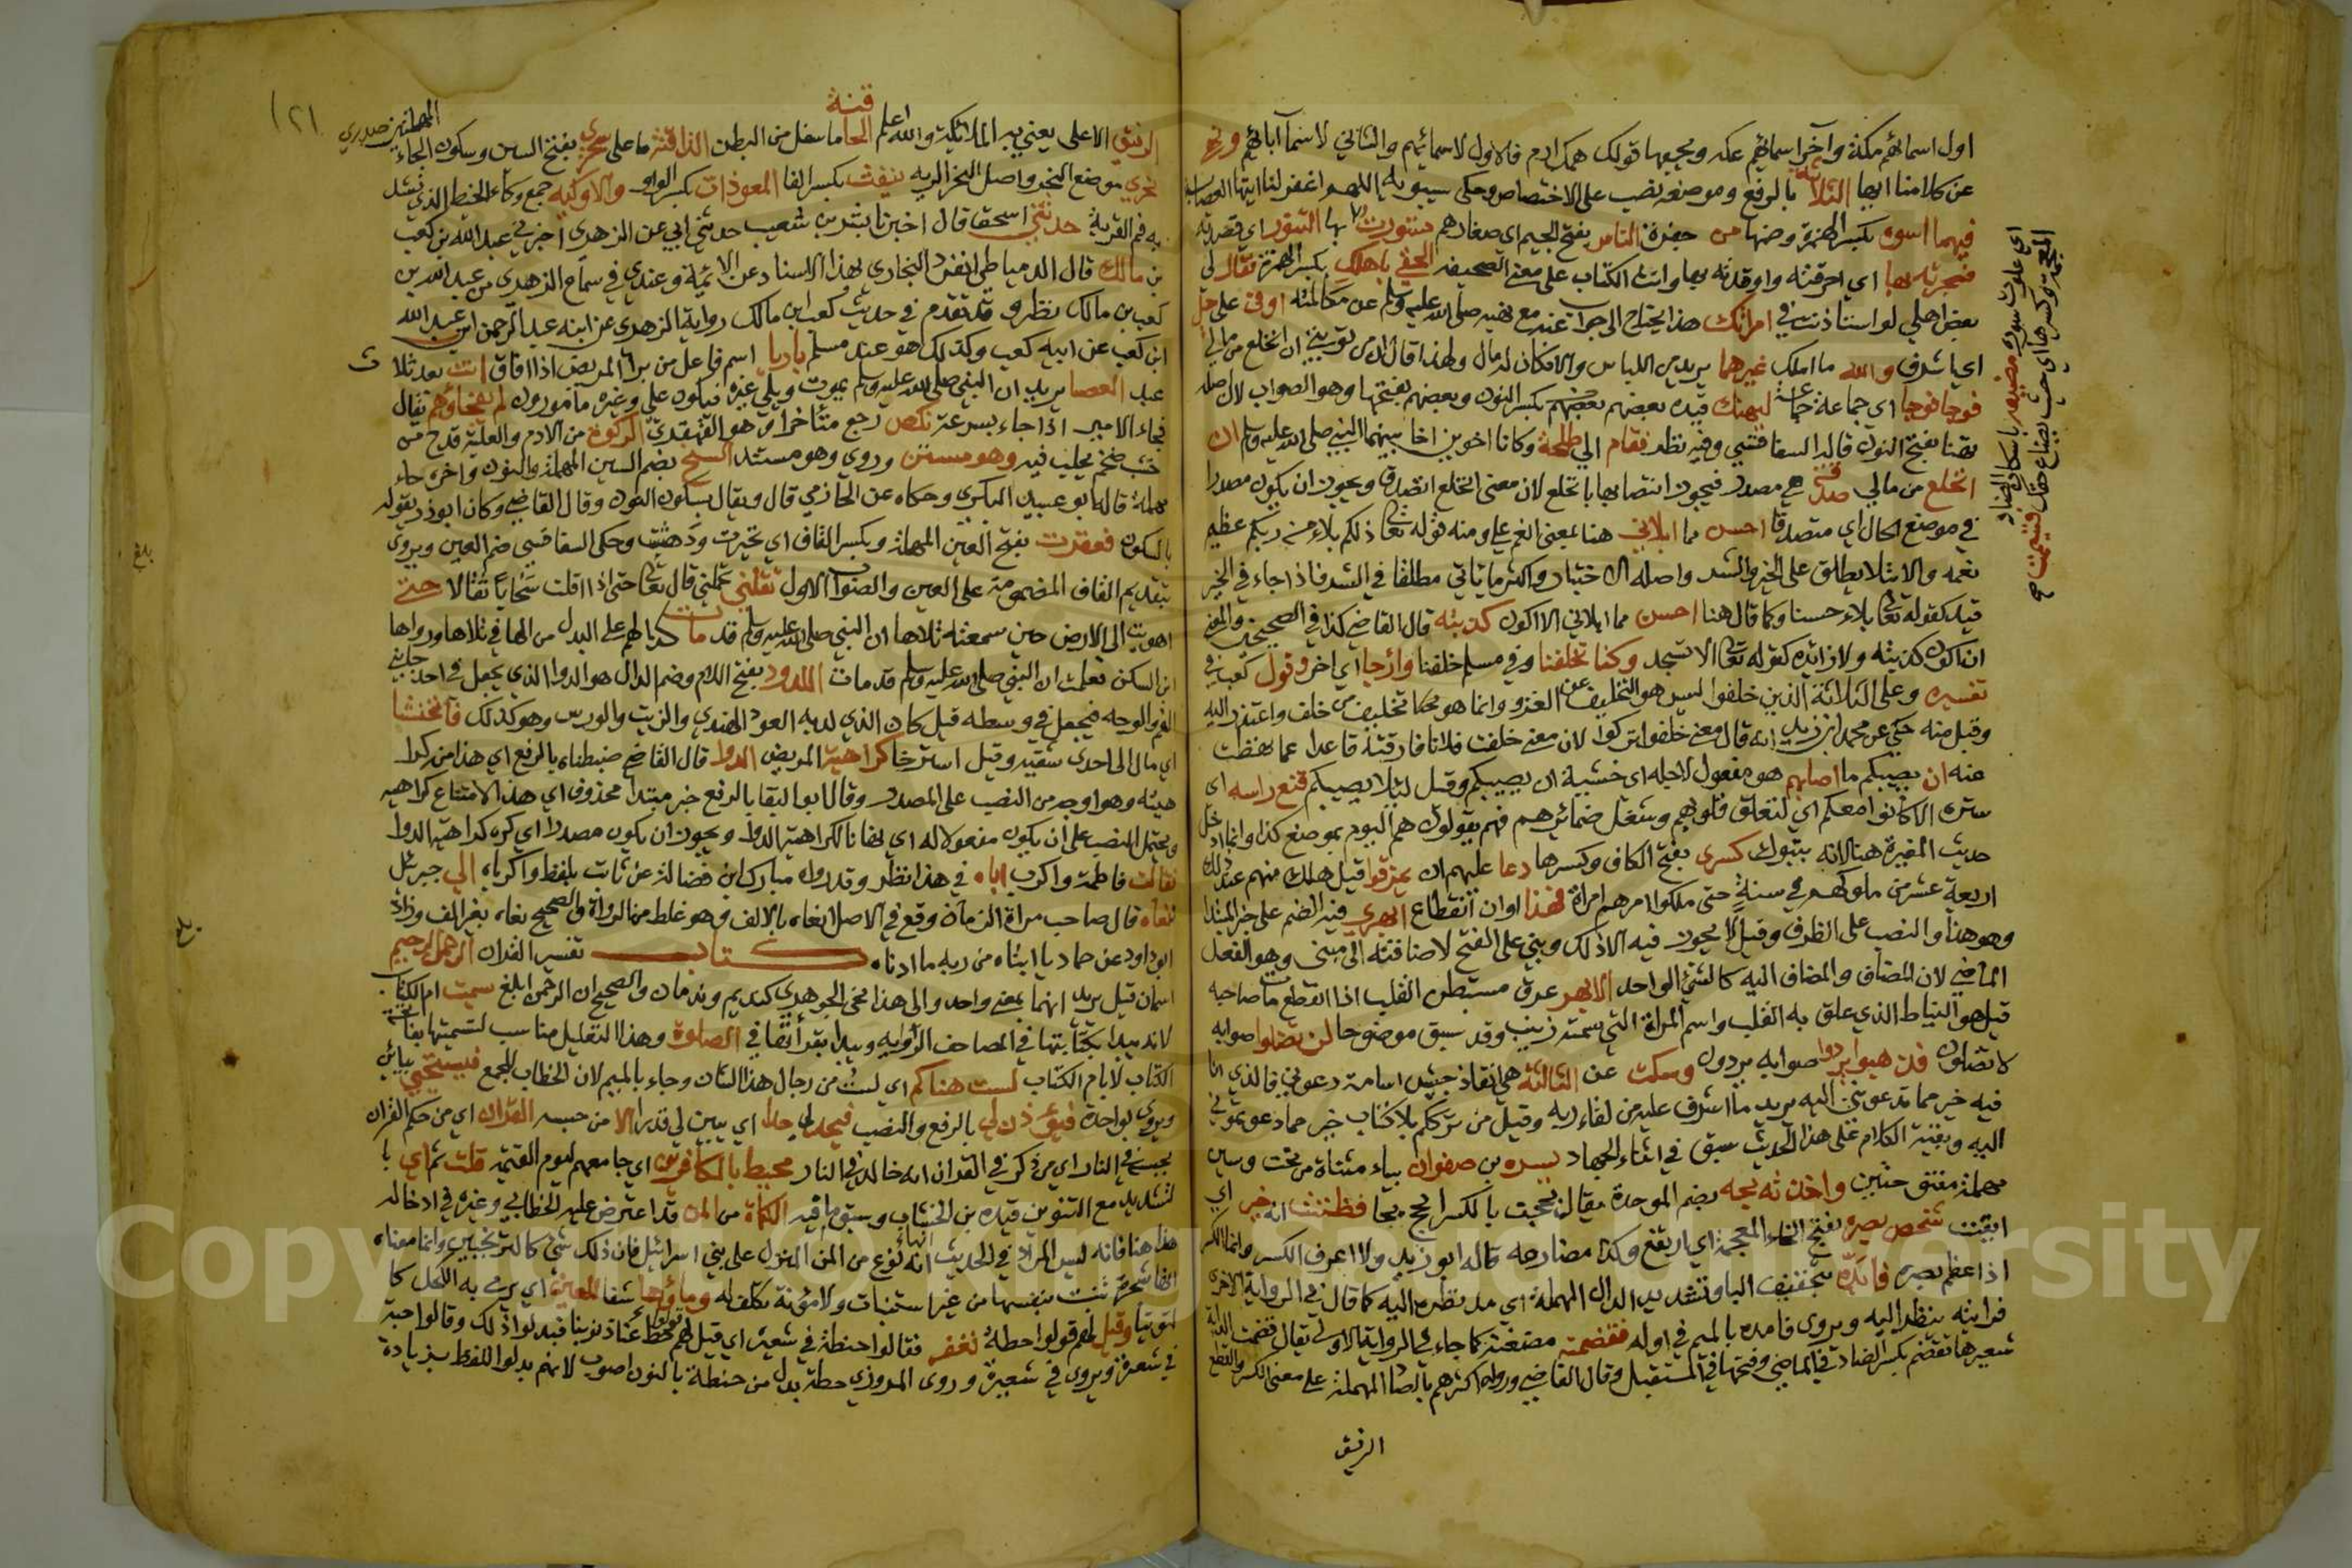 اول اسمائهم مكة وآخر اسمائهم عكه ويجمعها قولك همك ارم فالاول لاسمائهم والثاني لاسمآ آبائهم ونهى
عن كلامنا ايها الثلاثة بالرفع وموضعه نصب على الاختصاص وحكى سيبويه اللهم اغفر لنا ايتها العصابة
فيهما اسوة بكسر الهمزة وضمها من جفوة الناس بفتح الجيم اي صغارهم فتنورت بها التنور اي قصدته
فسجرته بها اي احرقته واوقدته بها وانث الكتاب على معنى الصحيفه الحقي باهلك بكسر الهمزة فقال لي
بعض اهلي لو استاذنت في امراتك هذا يحتاج الى جواب عنه مع نهيه صلى الله عليه وسلم عن مكالمته اوفى على جبل
اي اشرف والله ما املك غيرهما يريد من اللباس والا فكان له مال ولهذا قال ان من توبتي ان انخلع من مالي
فوجا فوجا اي جماعة جماعة ليهنك قيده بعضهم بكسر النون وبعضهم بفتحها وهو الصواب لان اصله
يهنا بفتح النون قاله السفاقسي وفيه نظر فقام الي طلحة وكانا اخوين اخا بينهما النبي صلى الله عليه وسلم ان
انخلع من مالي صدقة هي مصدر فيجوز انتصابها بانخلع لان معنى انخلع اتصدق ويجوز ان يكون مصدرا
في موضع الحال اي متصدقا احسن مما ابلاني هنا بمعنى انعم علي ومنه قوله تعالى ذلكم بلاء من ربكم عظيم
نعمه والابتلا يطلق على الخير والشر واصله الاختبار واكثر ما ياتي مطلقا في الشر فاذا جاء في الخير
قيد كقوله تعالى بلاء حسنا وكما قال هنا احسن مما ابلاني الا اكون كذبته قال القاضي كذا في الصحيحين والمعنى
ان اكون كذبته ولا زائدة كقوله تعالى الا تسجد وكنا تخلفنا وفي مسلم خلفنا وارجا اي اخر وقول كعب في
تفسيره وعلى الثلاثة الذين خلفوا ليس هو التخليف عن الغزو وانما هو تخليف من خلف واعتذر اليه
وقبل منه حكي عن محمد ابن زيد انه قال معنى خلفوا تركوا لان معنى خلفت فلانا فارقته قاعدا عما نهضت
عنه ان يصيبكم ما اصابهم هو مفعول لاجله اي خشية ان يصيبكم وقيل لئلا يصيبكم قنع راسه اي
ستره الا كانوا معكم اي لتعلق قلوبهم وشغل ضمائرهم فهم يقولون هم اليوم بموضع كذا وانما ادخل
حديث المغيرة هنا لانه بتبوك كسرى بفتح الكاف وكسرها دعا عليهم ان يمزقوا قيل هلك منهم عند ذلك
اربعة عشر من ملوكهم في سنة حتى ملكوا امرهم امراة فهذا اوان انقطاع ابهري فيه الضم على خبر المبتدا
وهو هذا والنصب على الظرف وقيل لا يجوز فيه الا ذلك وبني على الفتح لاضافته الى مبني وهو الفعل
الماضي لان المضاف والمضاف اليه كالشيء الواحد الابهر عرق مستبطن القلب اذا انقطع مات صاحبه
قيل هو النياط الذي علق به القلب واسم المراة التي سمته زينب وقد سبق موضوحا لن تضلوا صوابه
لا تضلون فذهبوا يردوا صوابه يردون وسكت عن الثالثة هي انفاذ جيش اسامة دعوني فالذي انا
فيه خير مما تدعونني اليه يريد ما اشرف عليه من لقاء ربه وقيل من ترككم بلا كتاب خير مما دعوتموني
اليه وبقية الكلام على هذا الحديث سبق في اثناء الجهاد يسرة بن صفوان بياء مثناة من تحت وسين
مهملة مفتوحتين واخذته بحه بضم الموحدة يقال بححت بالكسر ابح بححا فظننت انه خير اي
ايقنت شخص بصره بفتح الخاء المعجمة اي ارتفع وكذا مضارعه قاله ابو زيد ولا اعرف الكسر وانما الكسر
اذا عظم بصره فابده بتخفيف البا وتشديد الدال المهملة اي مد نظره اليه كما قال في الرواية الاخرى
فرايته ينظر اليه ويروى فامده بالميم في اوله فقضمته مضغته كما جاء في الرواية الاولى يقال قضمت الدابة
شعيرها تقضم بكسر الضاد في الماضي وفتحها في المستقبل وقال القاضي ورواه اكثرهم بالصاد المهملة على معنى الكسر والقطع
الرفيق
اي علوت سوره مضيعة باسكان الضاد
المعجمة وكسرها اي حيث يضاع حقك فتيممت صح
١٢١
الرفيق الاعلى يعني به الملائكة والله اعلم الحاقنة ما سفل من البطن الذاقنة ما على سحري بفتح السين وسكون الحاء المهملتين صدري
نحري موضع النحر واصل النحر الريه ينفث بكسر الفا المعوذات بكسر الواو والاوكيه جمع وكاء الخيط الذي يشد
به فم القربة حدثني اسحق قال اخبرنا بشر بن شعيب حدثني ابي عن الزهري اخبرني عبد الله بن كعب
بن مالك قال الدمياطي انفرد البخاري بهذا الاسناد عن الائمة وعندي في سماع الزهري من عبد الله بن
كعب بن مالك نظر وقد تقدم في حديث كعب ابن مالك رواية الزهري عن ابنه عبد الرحمن ابن عبد الله
ابن كعب عن ابيه كعب وكذلك هو عند مسلم باريا اسم فاعل من برا المريض اذا افاق انت بعد ثلاث
عبد العصا يريد ان النبي صلى الله عليه وسلم يموت ويلي غيره فيكون علي وغيره مامورون لم يفجاهم يقال
فجاء الامير اذا جاء بسرعة نكص رجع متاخرا وهو القهقرى الركوة من الادم والعلبة قدح من
خشب ضخم يحلب فيه وهو مستن وروي وهو مستند السنح بضم السين المهملة والنون واخره حاء
مهملة قاله ابو عبيد البكري وحكاه عن الحازمي قال ويقال بسكون النون وقال القاضي وكان ابو ذر يقوله
بالسكون فعقرت بفتح العين المهملة وبكسر القاف اي تحيرت ودهشت وحكى السفاقسي ضم العين ويروى
بتقديم القاف المضمومة على العين والصواب الاول تقلني تحملني قال تعالى حتى اذا اقلت سحابا ثقالا حتى
اهويت الى الارض حين سمعته تلاها ان النبي صلى الله عليه وسلم قد مات كذا لهم على البدل من الها في تلاها ورواها
ابن السكن فعلمت ان النبي صلى الله عليه وسلم قد مات اللدود بفتح اللام وضم الدال هو الدوا الذي يجعل في احد جانبي
الفم والوجه فيجعل في وسطه قيل كان الذي لد به العود الهندي والزيت والورس وهو كذلك فانخنث
اي مال الى احدى شقيه وقيل استرخا كراهية المريض الدوا قال القاضي ضبطناه بالرفع اي هذا من كراهية
هيئه وهو اوجه من النصب على المصدر وقال ابو البقا بالرفع خبر مبتدا محذوف اي هذا الامتناع كراهيه
ويحتمل النصب على ان يكون مفعولا له اي نهانا لكراهية الدوا ويجوز ان يكون مصدرا اي كره كراهة الدوا
فقالت فاطمة واكرب اباه في هذا نظر وقد رواه مبارك ابن فضالة عن ثابت بلفظ واكرباه الي جبريل
ننعاه قال صاحب مراة الزمان وقع في الاصل انعاه بالالف وهو غلط من الرواة والصحيح نعاه بغير الف وزاد
ابو داود عن حماد يا ابتاه من ربه ما ادناه كتاب تفسير القران الرحمن الرحيم
اسمان قيل يريد انهما بمعنى واحد والى هذا نحى الجوهري كنديم وندمان والصحيح ان الرحمن ابلغ سميت ام الكتاب
لانه يبدا بكتابتها في المصاحف ويبدا بقراتها في الصلوة وهذا التعليل مناسب لتسميتها بفاتحة
الكتاب لا بام الكتاب لست هناكم اي لست من رجال هذا الشان وجاء بالميم لان الخطاب للجمع فيستحيي بيائين
ويروى بواحدة فيؤذن لي بالرفع والنصب فيحد لي حدا اي يبين لي قدرا الا من حبسه القران اي من حكم القران
بحبسه في النار اي من ذكر في القران انه خالد في النار محيط بالكافرين اي جامعهم ليوم القيمة قلت ثم اي با
لتشديد مع التنوين قيده بن الخشاب وسبق ما فيه الكماة من المن قد اعترض عليه الخطابي وغيره في ادخاله
هذا هنا فانه ليس المراد في الحديث انها نوع من المن المنزل على بني اسرائيل فان ذلك شيء كالترنجبين وانما معناه
انها شجرة تنبت بنفسها من غير استنبات ولا مؤنة تكلف له وماؤها شفا للعين اي يربى به الكحل كا
لتوتيا وقيل لهم قولوا حطة نغفر فقالوا حنطة في شعيرة اي قيل لهم قولوا حط عنا ذنوبنا فبدلوا ذلك وقالوا حبة
في شعرة ويروى في شعيرة وروى المروزي حطة بدل من حنطة بالنون اصوب لانهم بدلوا اللفظ بزيادة
بلغ
Copy University